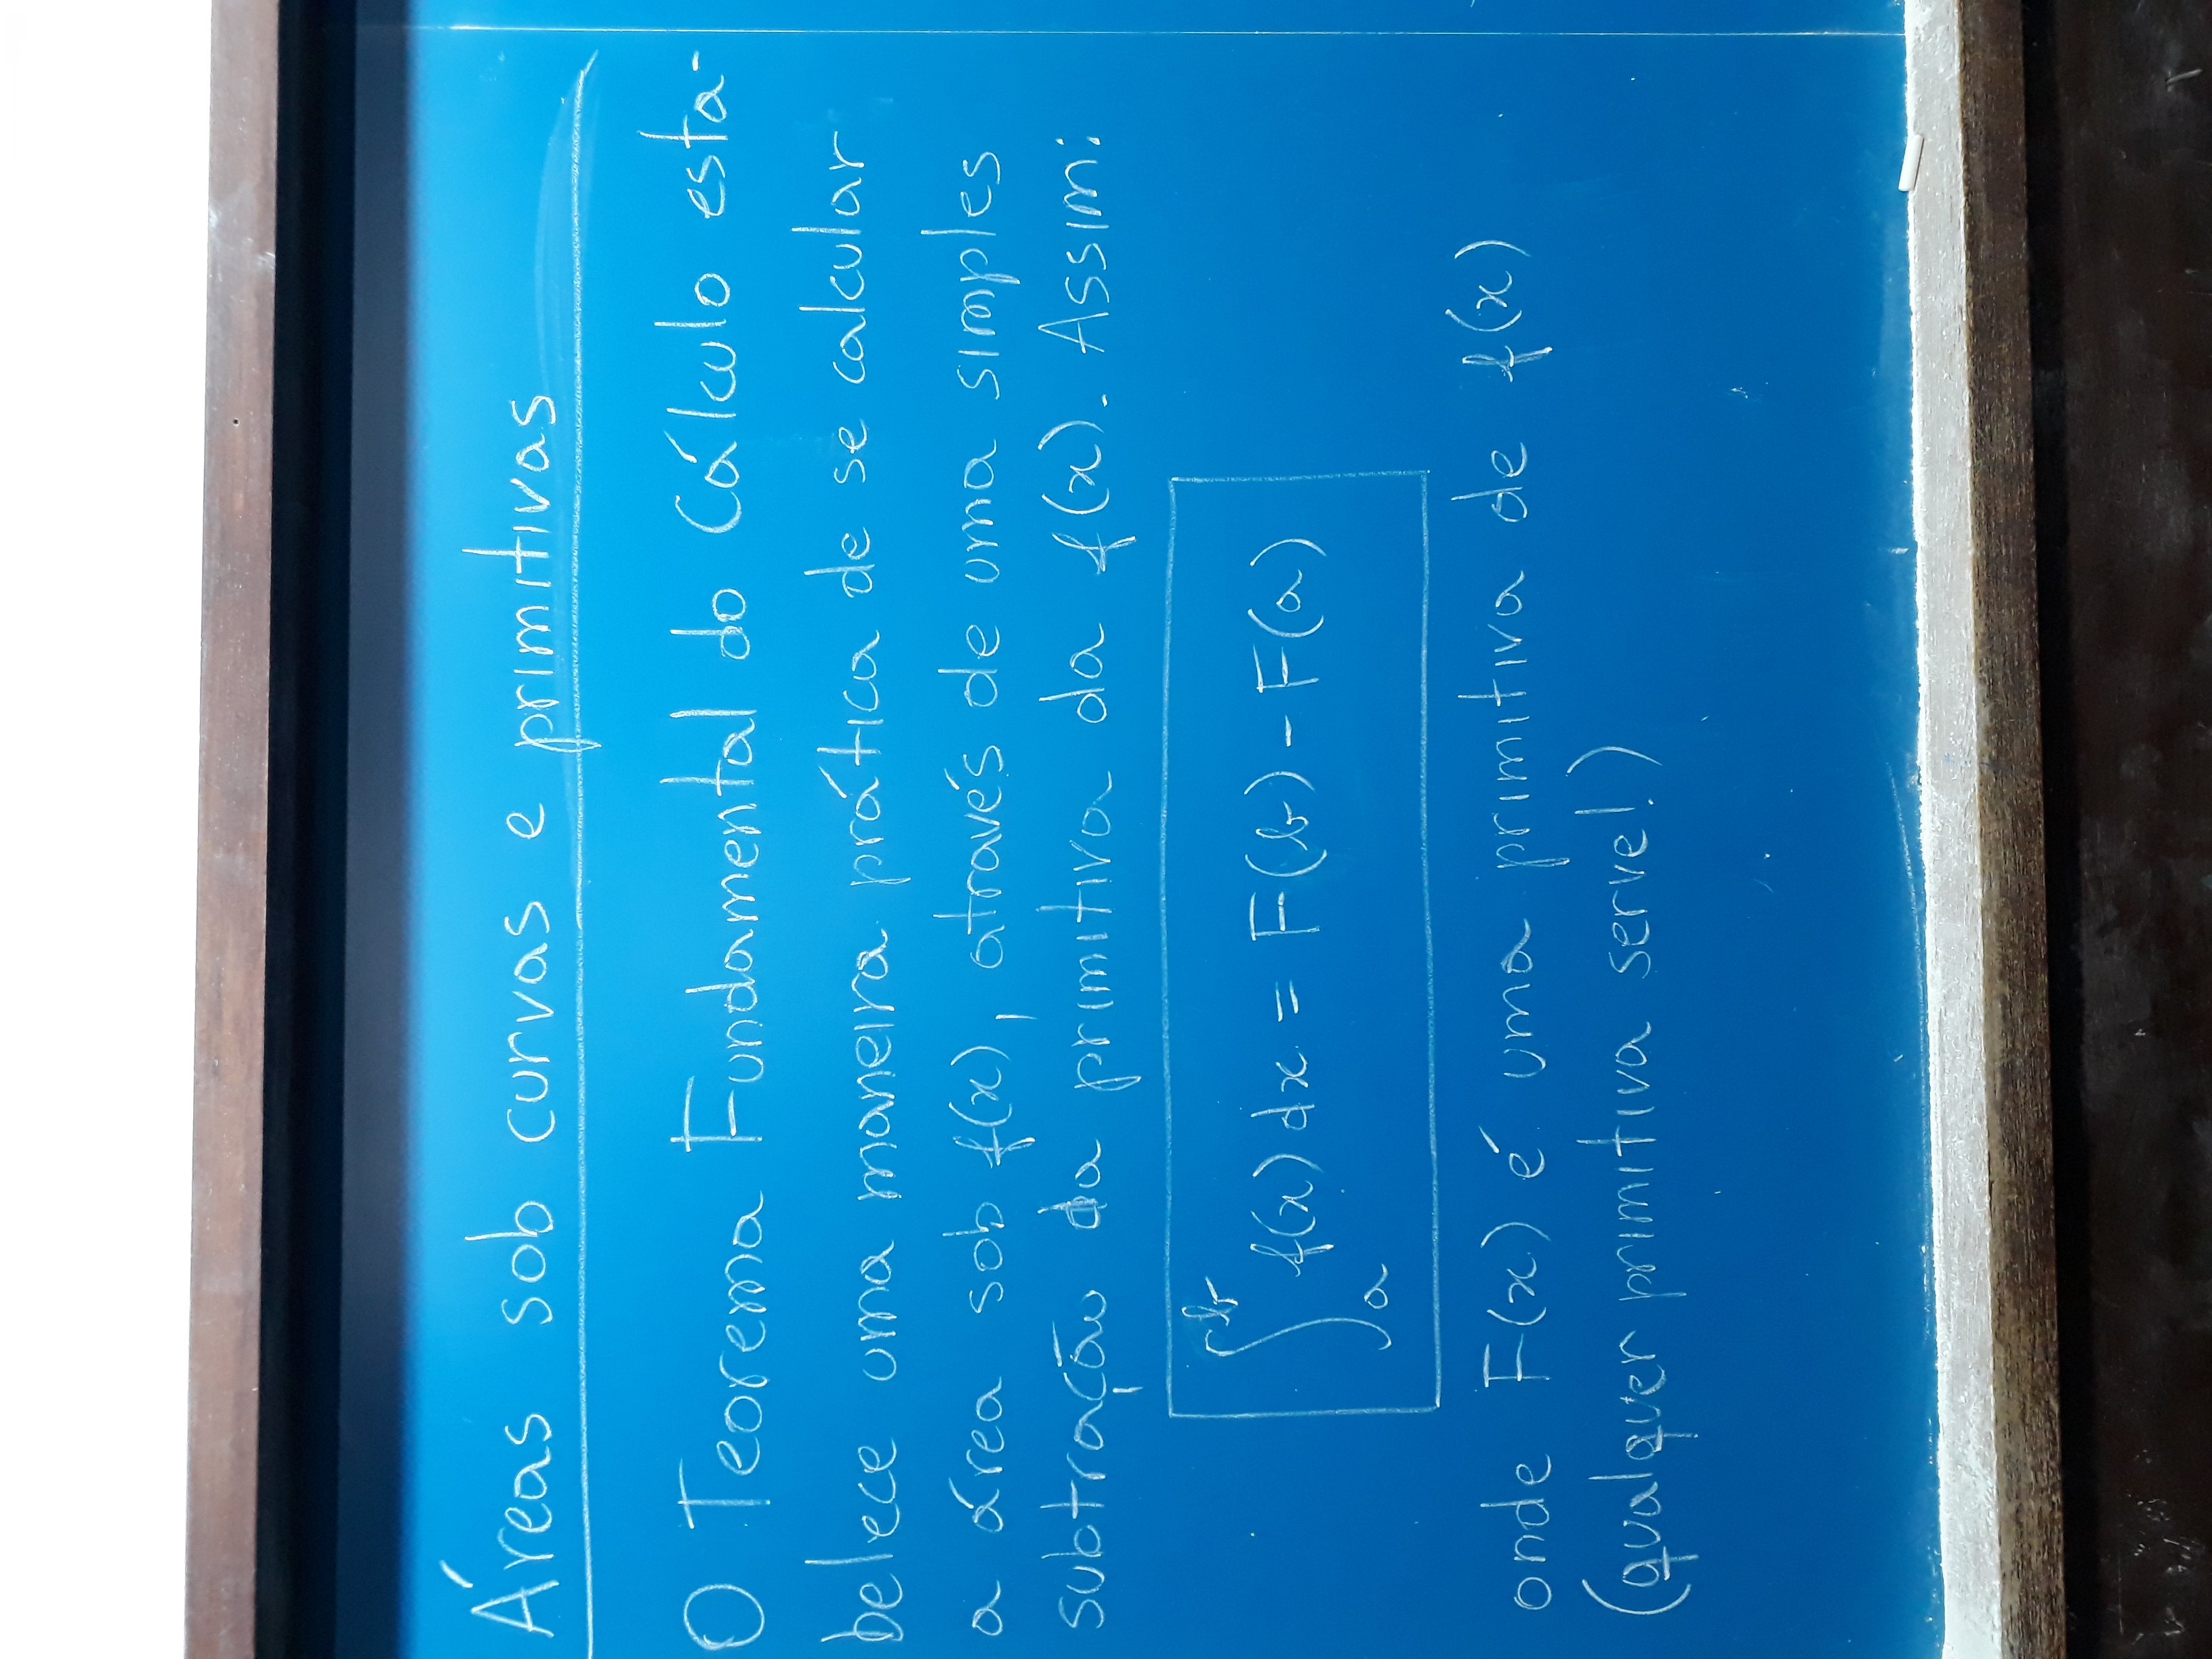 Áreas sob curvas e primitivas
O Teorema Fundamental do Cálculo esta-
belece uma maneira prática de se calcular
a área sob f(x), através de uma simples
subtração da primitiva da f(x). Assim:
∫_a^b f(x) dx = F(b) - F(a)
onde F(x) é uma primitiva de f(x)
(qualquer primitiva serve!)